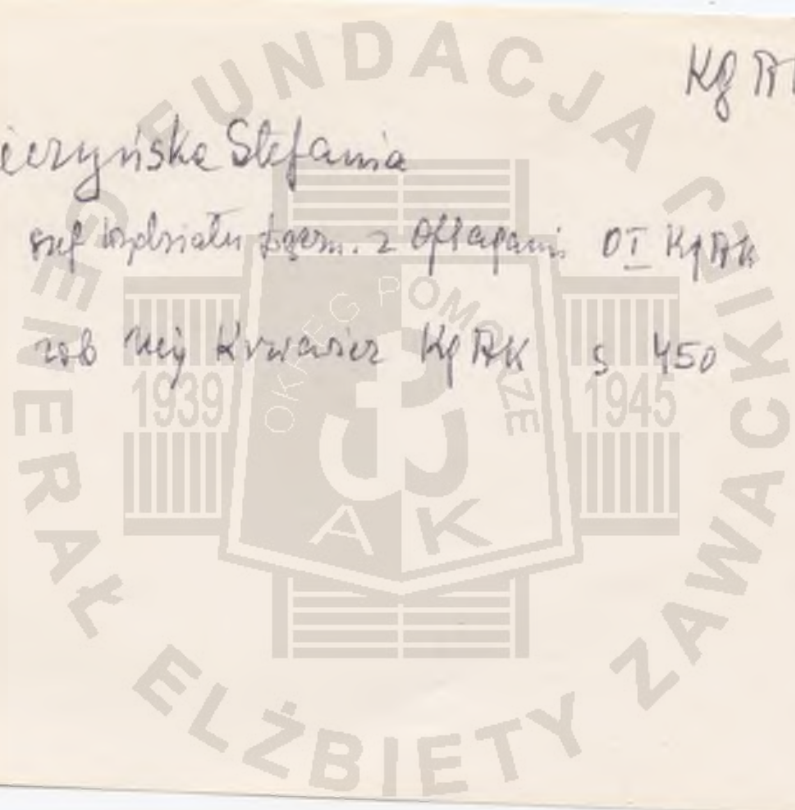 Kg AK
ierzyńska Stefania
szef wydziału łączn. z Oflagami OI KgAK
zob Kg AK s 450
FUNDACJA GENERAŁ ELŻBIETY ZAWACKIEJ
OKRĘG POMORZE
1939 1945
AK